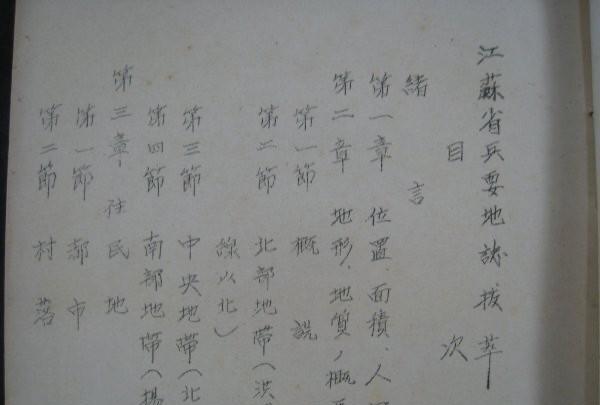 江蘇省兵要地誌拔萃
目次
緒言
第一章 位置、面積、人
第二章 地形、地質ノ概
第一節 概説
第二節 北部地帶(洪
線以北)
第三節 中央地帶(北
第四節 南部地帶(揚
第三章 住民地
第一節 都市
第二節 村落